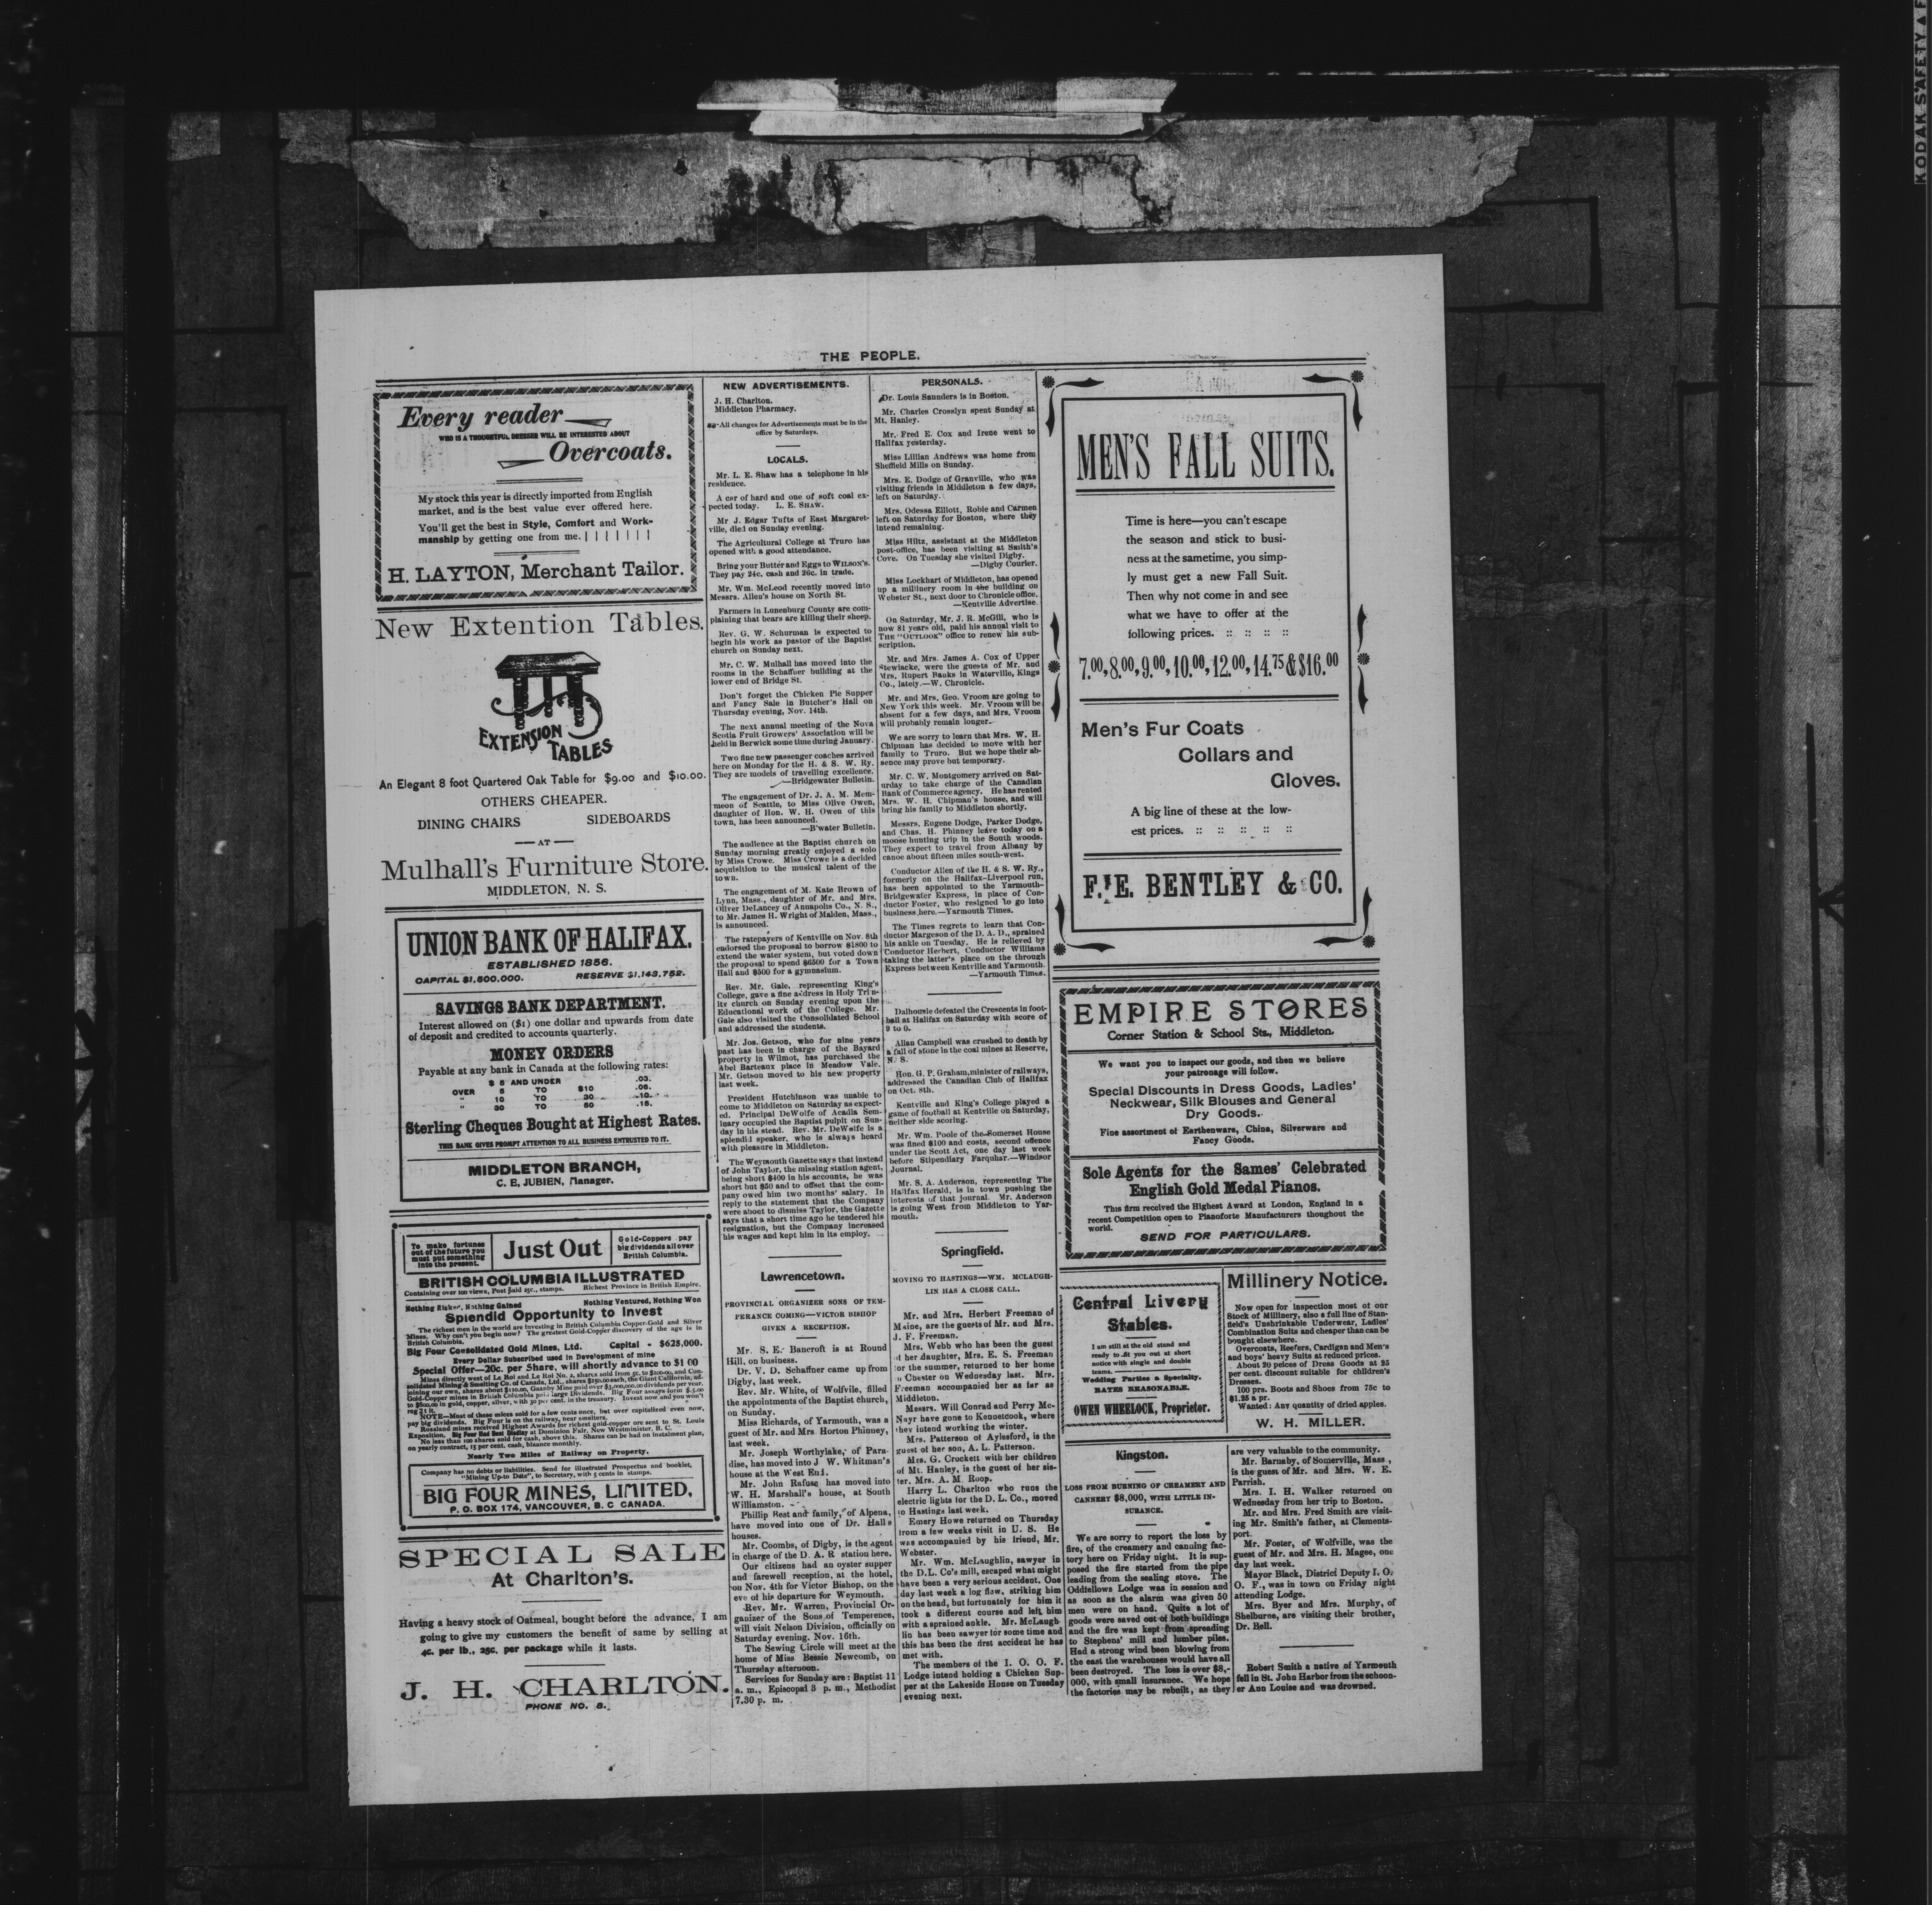 THE PEOPLE.
Every reader
WHO IS A THOUGHTFUL DRESSER WILL BE INTERESTED ABOUT
Overcoats.
My stock this year is directly imported from English
market, and is the best value ever offered here.
You'll get the best in Style, Comfort and Work-
manship by getting one from me.
H. LAYTON, Merchant Tailor.
New Extention Tables.
EXTENSION
TABLES
An Elegant 8 foot Quartered Oak Table for $9.00 and $10.00.
OTHERS CHEAPER.
DINING CHAIRS SIDEBOARDS
AT
Mulhall's Furniture Store.
MIDDLETON, N. S.
UNION BANK OF HALIFAX.
ESTABLISHED 1856.
CAPITAL $1,500,000. RESERVE $1,143,752.
SAVINGS BANK DEPARTMENT.
Interest allowed on ($1) one dollar and upwards from date
of deposit and credited to accounts quarterly.
MONEY ORDERS
Payable at any bank in Canada at the following rates:
$ 5 AND UNDER .03.
OVER 5 TO $10 .06.
" 10 TO 30 .10.
" 30 TO 50 .15.
Sterling Cheques Bought at Highest Rates.
THIS BANK GIVES PROMPT ATTENTION TO ALL BUSINESS ENTRUSTED TO IT.
MIDDLETON BRANCH,
C. E. JUBIEN, Manager.
To make fortunes
out of the future you
must put something
into the present.
Just Out
Gold-Coppers pay
big dividends all over
British Columbia.
BRITISH COLUMBIA ILLUSTRATED
Containing over 100 views, Post paid 25c., stamps. Richest Province in British Empire.
Nothing Risked, Nothing Gained Nothing Ventured, Nothing Won
Splendid Opportunity to Invest
The richest men in the world are investing in British Columbia Copper-Gold and Silver
Mines. Why can't you begin now? The greatest Gold-Copper discovery of the age is in
British Columbia.
Big Four Consolidated Gold Mines, Ltd. Capital - $625,000.
Every Dollar Subscribed used in Development of mine
Special Offer—20c. per Share, will shortly advance to $1 00
Mines directly west of Le Roi and Le Roi No. 2, shares sold from 5c. to $100.00, and Con-
solidated Mining & Smelting Co. of Canada, Ltd., shares $150.00 each, the Giant California, ad-
joining our own, shares about $110.00, Granby Mine paid over $3,000,000.00 dividends per year.
Gold-Copper mines in British Columbia paid large Dividends. Big Four assays form $ 5.00
to $800.00 in gold, copper, silver, with 30 per cent. in the treasury. Invest now and you won't
reg 1t it.
NOTE—Most of these mines sold for a few cents once, but over capitalized even now,
pay big dividends. Big Four is on the railway, near smelters.
Rossland mines received Highest Awards for richest gold-copper ore sent to St. Louis
Exposition. Big Four Had Best Display at Dominion Fair, New Westminister, B. C.
No less than 100 shares sold for cash, above this. Shares can be had on instalment plan,
on yearly contract, 15 per cent. cash, blaance monthly.
Nearly Two Miles of Railway on Property.
Company has no debts or liabilities. Send for illustrated Prospectus and booklet,
"Mining Up-to Date", to Secretary, with 5 cents in stamps.
BIG FOUR MINES, LIMITED,
P. O. BOX 174, VANCOUVER, B. C CANADA.
SPECIAL SALE
At Charlton's.
Having a heavy stock of Oatmeal, bought before the advance, I am
going to give my customers the benefit of same by selling at
4c. per lb., 25c. per package while it lasts.
J. H. CHARLTON.
PHONE NO. 8.
NEW ADVERTISEMENTS.
J. H. Charlton.
Middleton Pharmacy.
All changes for Advertisements must be in the
office by Saturdays.
LOCALS.
Mr. L. E. Shaw has a telephone in his
residence.
A car of hard and one of soft coal ex-
pected today. L. E. SHAW.
Mr J. Edgar Tufts of East Margaret-
ville, died on Sunday evening.
The Agricultural College at Truro has
opened with a good attendance.
Bring your Butter and Eggs to WILSON'S.
They pay 24c. cash and 26c. in trade.
Mr. Wm. McLeod recently moved into
Messrs. Allen's house on North St.
Farmers in Lunenburg County are com-
plaining that bears are killing their sheep.
Rev. G. W. Schurman is expected to
begin his work as pastor of the Baptist
church on Sunday next.
Mr. C. W. Mulhall has moved into the
rooms in the Schaffner building at the
lower end of Bridge St.
Don't forget the Chicken Pie Supper
and Fancy Sale in Butcher's Hall on
Thursday evening, Nov. 14th.
The next annual meeting of the Nova
Scotia Fruit Growers' Association will be
held in Berwick some time during January.
Two fine new passenger coaches arrived
here on Monday for the H. & S. W. Ry.
They are models of travelling excellence.
—Bridgewater Bulletin.
The engagement of Dr. J. A. M. Mem-
meon of Seattle, to Miss Olive Owen,
daughter of Hon. W. H. Owen of this
town, has been announced.
—B'water Bulletin.
The audience at the Baptist church on
Sunday morning greatly enjoyed a solo
by Miss Crowe. Miss Crowe is a decided
acquisition to the musical talent of the
town.
The engagement of M. Kate Brown of
Lynn, Mass., daughter of Mr. and Mrs.
Oliver DeLancey of Annapolis Co., N. S.,
to Mr. James H. Wright of Malden, Mass.,
is announced.
The ratepayers of Kentville on Nov. 8th
endorsed the proposal to borrow $1800 to
extend the water system, but voted down
the proposal to spend $6500 for a Town
Hall and $500 for a gymnasium.
Rev. Mr. Gale, representing King's
College, gave a fine address in Holy Trin-
ity church on Sunday evening upon the
Educational work of the College. Mr.
Gale also visited the Consolidated School
and addressed the students.
Mr. Jos. Getson, who for nine years
past has been in charge of the Bayard
property in Wilmot, has purchased the
Abel Barteaux place in Meadow Vale.
Mr. Getson moved to his new property
last week.
President Hutchinson was unable to
come to Middleton on Saturday as expect-
ed. Principal DeWolfe of Acadia Sem-
inary occupied the Baptist pulpit on Sun-
day in his stead. Rev. Mr. DeWolfe is a
splendid speaker, who is always heard
with pleasure in Middleton.
The Weymouth Gazette says that instead
of John Taylor, the missing station agent,
being short $400 in his accounts, he was
short but $50 and to offset that the com-
pany owed him two months' salary. In
reply to the statement that the Company
were about to dismiss Taylor, the Gazette
says that a short time ago he tendered his
resignation, but the Company increased
his wages and kept him in its employ.
Lawrencetown.
PROVINCIAL ORGANIZER SONS OF TEM-
PERANCE COMING—VICTOR BISHOP
GIVEN A RECEPTION.
Mr. S. E. Bancroft is at Round
Hill, on business.
Dr. V. D. Schaffner came up from
Digby, last week.
Rev. Mr. White, of Wolfvile, filled
the appointments of the Baptist church,
on Sunday.
Miss Richards, of Yarmouth, was a
guest of Mr. and Mrs Horton Phinney,
last week.
Mr. Joseph Worthylake, of Para-
dise, has moved into J W. Whitman's
house at the West End.
Mr. John Rafuse has moved into
W. H. Marshall's house, at South
Williamston.
Phillip Best and family, of Alpena,
have moved into one of Dr. Hall s
houses.
Mr. Coombs, of Digby, is the agent
in charge of the D. A. R station here.
Our citizens had an oyster supper
and farewell reception, at the hotel,
on Nov. 4th for Victor Bishop, on the
eve of his departure for Weymouth.
Rev. Mr. Warren, Provincial Or-
ganizer of the Sons of Temperence,
will visit Nelson Division, officially on
Saturday evening, Nov. 16th.
The Sewing Circle will meet at the
home of Miss Bessie Newcomb, on
Thursday afternoon.
Services for Sunday are: Baptist 11
a. m., Episcopal 3 p. m., Methodist
7.30 p. m.
PERSONALS.
Dr. Louis Saunders is in Boston.
Mr. Charles Crosslyn spent Sunday at
Mt. Hanley.
Mr. Fred E. Cox and Irene went to
Halifax yesterday.
Miss Lillian Andrews was home from
Sheffield Mills on Sunday.
Mrs. E. Dodge of Granville, who was
visiting friends in Middleton a few days,
left on Saturday.
Mrs. Odessa Elliott, Roble and Carmen
left on Saturday for Boston, where they
intend remaining.
Miss Hiltz, assistant at the Middleton
post-office, has been visiting at Smith's
Cove. On Tuesday she visited Digby.
—Digby Courier.
Miss Lockhart of Middleton, has opened
up a millinery room in the building on
Webster St., next door to Chronicle office.
—Kentville Advertise.
On Saturday, Mr. J. R. McGill, who is
now 81 years old, paid his annual visit to
THE "OUTLOOK" office to renew his sub-
scription.
Mr. and Mrs. James A. Cox of Upper
Stewiacke, were the guests of Mr. and
Mrs. Rupert Banks in Waterville, Kings
Co., lately.—W. Chronicle.
Mr. and Mrs. Geo. Vroom are going to
New York this week. Mr. Vroom will be
absent for a few days, and Mrs. Vroom
will probably remain longer.
We are sorry to learn that Mrs. W. H.
Chipman has decided to move with her
family to Truro. But we hope their ab-
sence may prove but temporary.
Mr. C. W. Montgomery arrived on Sat-
urday to take charge of the Canadian
Bank of Commerce agency. He has rented
Mrs. W. H. Chipman's house, and will
bring his family to Middleton shortly.
Messrs. Eugene Dodge, Parker Dodge,
and Chas. H. Phinney leave today on a
moose hunting trip in the South woods.
They expect to travel from Albany by
canoe about fifteen miles south-west.
Conductor Allen of the H. & S. W. Ry.,
formerly on the Halifax-Liverpool run,
has been appointed to the Yarmouth-
Bridgewater Express, in place of Con-
ductor Foster, who resigned to go into
business here.—Yarmouth Times.
The Times regrets to learn that Con-
ductor Margeson of the D. A. D., sprained
his ankle on Tuesday. He is relieved by
Conductor Herbert, Conductor Williams
taking the latter's place on the through
Express between Kentville and Yarmouth.
—Yarmouth Times.
Dalhousie defeated the Crescents in foot-
ball at Halifax on Saturday with score of
9 to 0.
Allan Campbell was crushed to death by
a fall of stone in the coal mines at Reserve,
N. S.
Hon. G. P. Graham, minister of railways,
addressed the Canadian Club of Halifax
on Oct. 8th.
Kentville and King's College played a
game of football at Kentville on Saturday,
neither side scoring.
Mr. Wm. Poole of the Somerset House
was fined $100 and costs, second offence
under the Scott Act, one day last week
before Stipendiary Farquhar.—Windsor
Journal.
Mr. S. A. Anderson, representing The
Halifax Herald, is in town pushing the
interests of that journal. Mr. Anderson
is going West from Middleton to Yar-
mouth.
Springfield.
MOVING TO HASTINGS—WM. MCLAUGH-
LIN HAS A CLOSE CALL.
Mr. and Mrs. Herbert Freeman of
Maine, are the guests of Mr. and Mrs.
J. F. Freeman.
Mrs. Webb who has been the guest
of her daughter, Mrs. E. S. Freeman
for the summer, returned to her home
n Chester on Wednesday last. Mrs.
Freeman accompanied her as far as
Middleton.
Messrs. Will Conrad and Perry Mc-
Nayr have gone to Kennetcook, where
they intend working the winter.
Mrs. Patterson of Aylesford, is the
guest of her son, A. L. Patterson.
Mrs. G. Crockett with her children
of Mt. Hanley, is the guest of her sis-
ter. Mrs. A. M. Roop.
Harry L. Charlton who runs the
electric lights for the D. L. Co., moved
to Hastings last week.
Emery Howe returned on Thursday
from a few weeks visit in U. S. He
was accompanied by his friend, Mr.
Webster.
Mr. Wm. McLaughlin, sawyer in
the D.L. Co's mill, escaped what might
have been a very serious accident. One
day last week a log flew, striking him
on the head, but fortunately for him it
took a different course and left him
with a sprained ankle. Mr. McLaugh
lin has been sawyer for some time and
this has been the first accident he has
met with.
The members of the I. O. O. F.
Lodge intend holding a Chicken Sup-
per at the Lakeside House on Tuesday
evening next.
MEN'S FALL SUITS.
Time is here—you can't escape
the season and stick to busi-
ness at the sametime, you simp-
ly must get a new Fall Suit.
Then why not come in and see
what we have to offer at the
following prices. :: :: :: ::
7.00, 8.00, 9.00, 10.00, 12.00, 14.75 & $16.00
Men's Fur Coats
Collars and
Gloves.
A big line of these at the low-
est prices. :: :: :: :: ::
F. E. BENTLEY & CO.
EMPIRE STORES
Corner Station & School Sts., Middleton.
We want you to inspect our goods, and then we believe
your patronage will follow.
Special Discounts in Dress Goods, Ladies'
Neckwear, Silk Blouses and General
Dry Goods.
Fine assortment of Earthenware, China, Silverware and
Fancy Goods.
Sole Agents for the Sames' Celebrated
English Gold Medal Pianos.
This firm received the Highest Award at London, England in a
recent Competition open to Pianoforte Manufacturers thoughout the
world.
SEND FOR PARTICULARS.
Central Livery
Stables.
I am still at the old stand and
ready to fit you out at short
notice with single and double
teams.
Wedding Parties a Specialty.
RATES REASONABLE.
OWEN WHEELOCK, Proprietor.
Millinery Notice.
Now open for inspection most of our
Stock of Millinery, also a full line of Stan-
field's Unshrinkable Underwear, Ladies'
Combination Suits and cheaper than can be
bought elsewhere.
Overcoats, Reefers, Cardigan and Men's
and boys' heavy Suits at reduced prices.
About 20 peices of Dress Goods at 25
per cent. discount suitable for children's
Dresses.
100 prs. Boots and Shoes from 75c to
$1.25 a pr.
Wanted: Any quantity of dried apples.
W. H. MILLER.
Kingston.
LOSS FROM BURNING OF CREAMERY AND
CANNERY $8,000, WITH LITTLE IN-
SURANCE.
We are sorry to report the loss by
fire, of the creamery and canning fac-
tory here on Friday night. It is sup-
posed the fire started from the pipe
leading from the sealing stove. The
Oddfellows Lodge was in session and
as soon as the alarm was given 50
men were on hand. Quite a lot of
goods were saved out of both buildings
and the fire was kept from spreading
to Stephens' mill and lumber piles.
Had a strong wind been blowing from
the east the warehouses would have all
been destroyed. The loss is over $8,-
000, with small insurance. We hope
the factories may be rebuilt, as they
are very valuable to the community.
Mr. Barnaby, of Somerville, Mass.,
is the guest of Mr. and Mrs. W. E.
Parrish.
Mrs. I. H. Walker returned on
Wednesday from her trip to Boston.
Mr. and Mrs. Fred Smith are visit-
ing Mr. Smith's father, at Clements-
port.
Mr. Foster, of Wolfville, was the
guest of Mr. and Mrs. H. Magee, one
day last week.
Mayor Black, District Deputy I. O.
O. F., was in town on Friday night
attending Lodge.
Mrs. Byer and Mrs. Murphy, of
Shelburne, are visiting their brother,
Dr. Bell.
Robert Smith a native of Yarmouth
fell in St. John Harbor from the schoon-
er Ann Louise and was drowned.
KODAK SAFETY